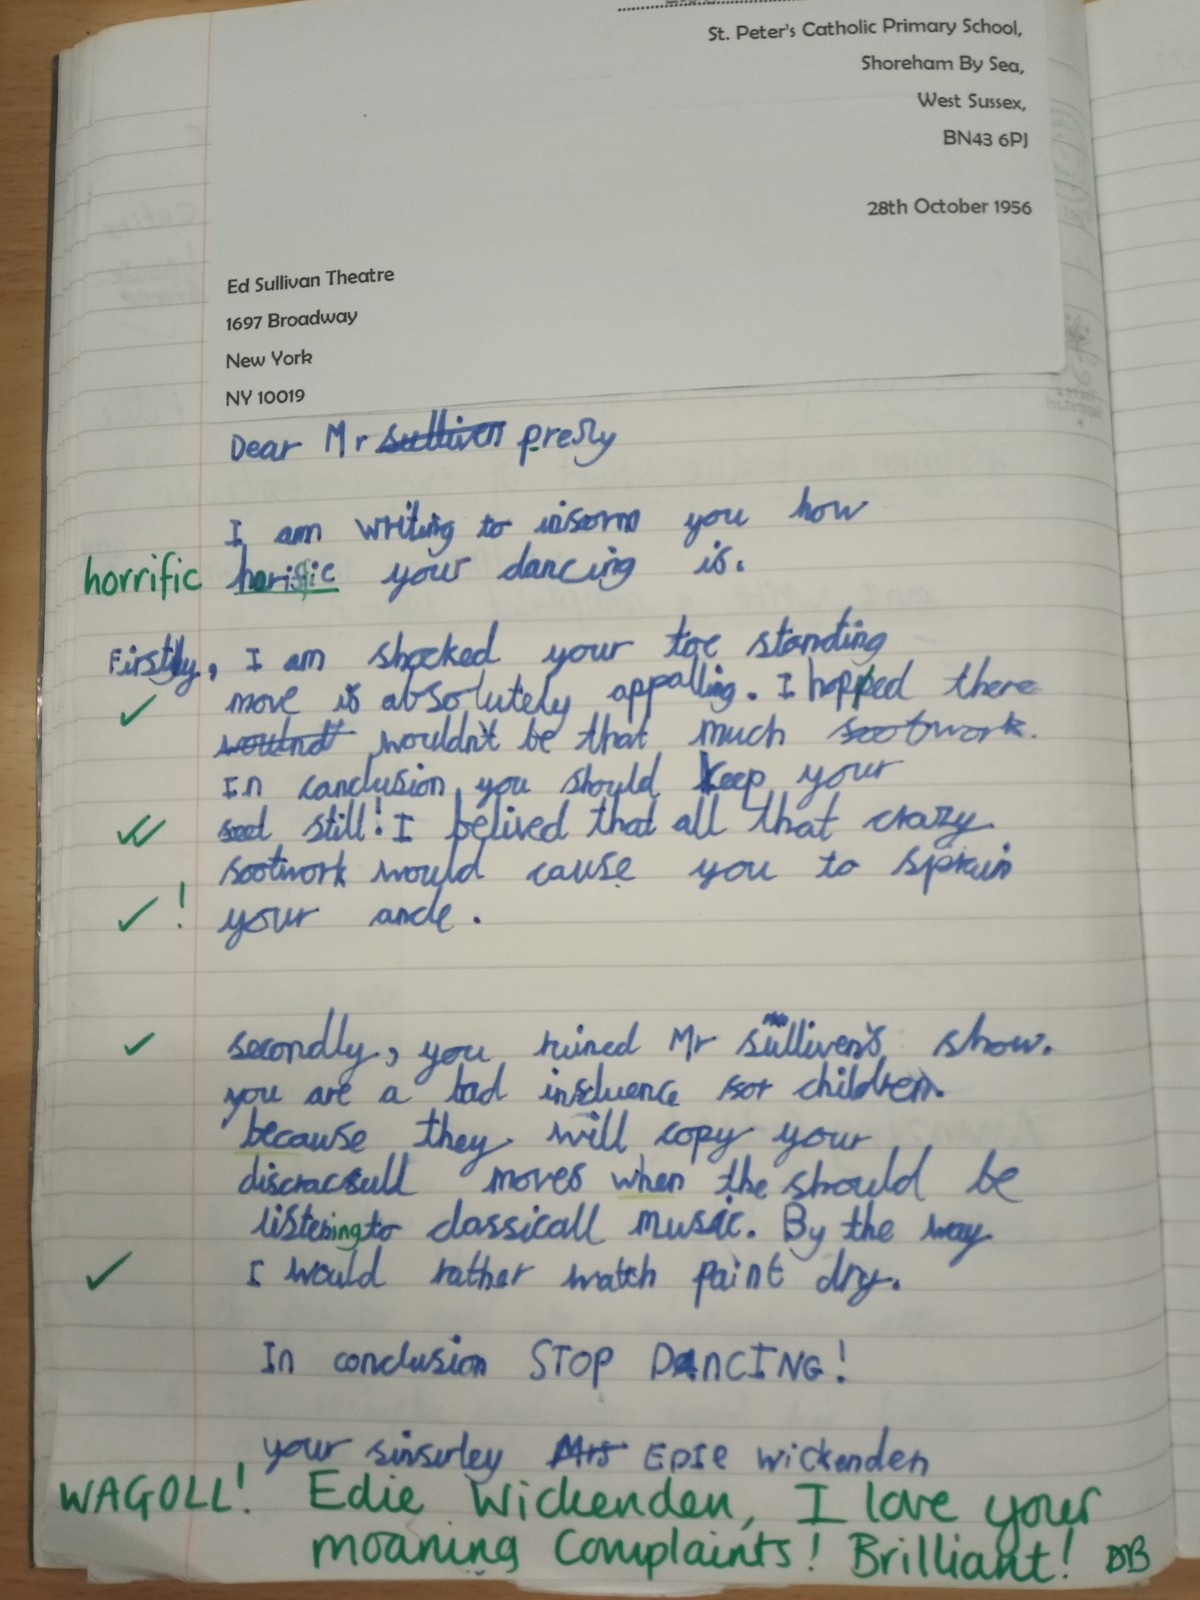 St. Peter's Catholic Primary School,
Shoreham By Sea,
West Sussex,
BN43 6PJ
28th October 1956
Ed Sullivan Theatre
1697 Broadway
New York
NY 10019
Dear Mr sulliven presly
I am writing to inform you how
horrific horific your dancing is.
Firstly, I am shocked your toe standing
move is absolutely appalling. I hopped there
woudnt wouldn't be that much footwork.
In conclusion, you should keep your
feet still! I belived that all that crazy
footwork would cause you to sprain
! your ancle.
secondly, you ruined Mr sulliven's show.
you are a bad influence for children.
because they will copy your
discracfull moves when the should be
listening to classicall music. By the way
I would rather watch paint dry.
In conclusion STOP DANCING!
your sinserley Mrs EDIE wickenden
WAGOLL! Edie Wickenden, I love your
moaning complaints! Brilliant! DB